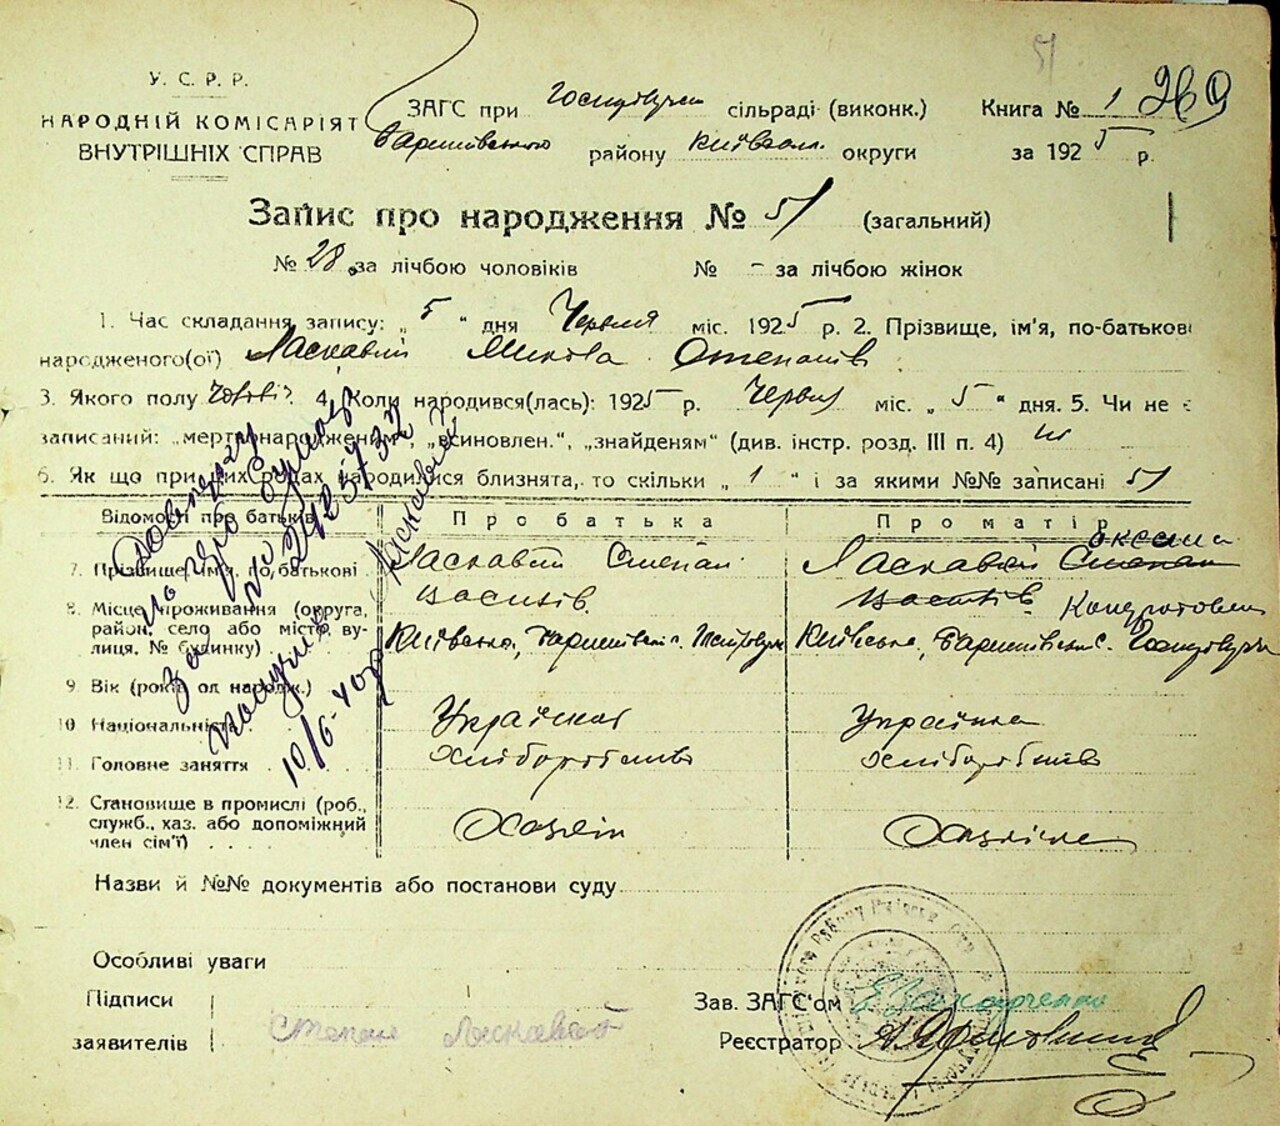 51
У. С. Р. Р.
НАРОДНІЙ КОМІСАРІЯТ
ВНУТРІШНІХ СПРАВ
ЗАГС при сільраді (виконк.)
Баришівського району Київськ. округи
Книга № 1 269
за 1925 р.
Запис про народження № 51 (загальний)
№ 28 за лічбою чоловіків № - за лічбою жінок
1. Час складання запису: „ 5 “ дня Червня міс. 1925 р. 2. Прізвище, ім'я, по-батькові
народженого(ої) Ласкавий Микола Степанів
3. Якого полу Чолові. 4. Коли народився(лась): 1925 р. Червня міс. „ 5 “ дня. 5. Чи не є
записаний: „мертвонародженим“, „всиновлен.“, „знайденям“ (див. інстр. розд. III п. 4) ні
6. Як що при цих родах народилися близнята, то скільки „ 1 “ і за якими №№ записані 51
Відомості про батьків
Про батька
Про матір
7. Прізвище, імя, по батькові
Ласкавий Степан
Ласкавий Степан Оксана
Кондратовна
8. Місце проживання (округа,
район, село або місто, ву-
лиця, № будинку)
Київська, Баришівськ с.
Київська, Баришівськ с.
9. Вік (років од народж.)
10 Національність
Українська
Українка
11. Головне заняття
хліборобство
хліборобство
12. Становище в промислі (роб.,
служб., хаз. або допоміжний
член сім'ї)
Хазяїн
Хазяйка
Назви й №№ документів або постанови суду
Особливі уваги
Підписи
заявителів
Степан Ласкавий
Зав. ЗАГС'ом Захарченко
Реєстратор
10/6-40р Ласкавий